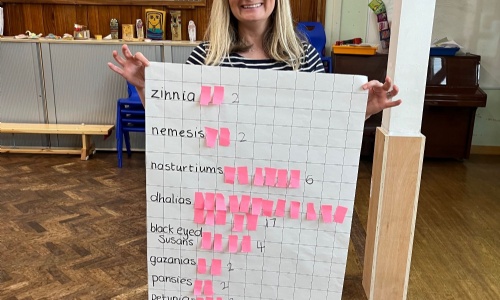 zinnia 2
nemesis 2
nasturtiums 6
dhalias 17
black eyed
Susans 4
gazanias 2
pansies 2
petunia